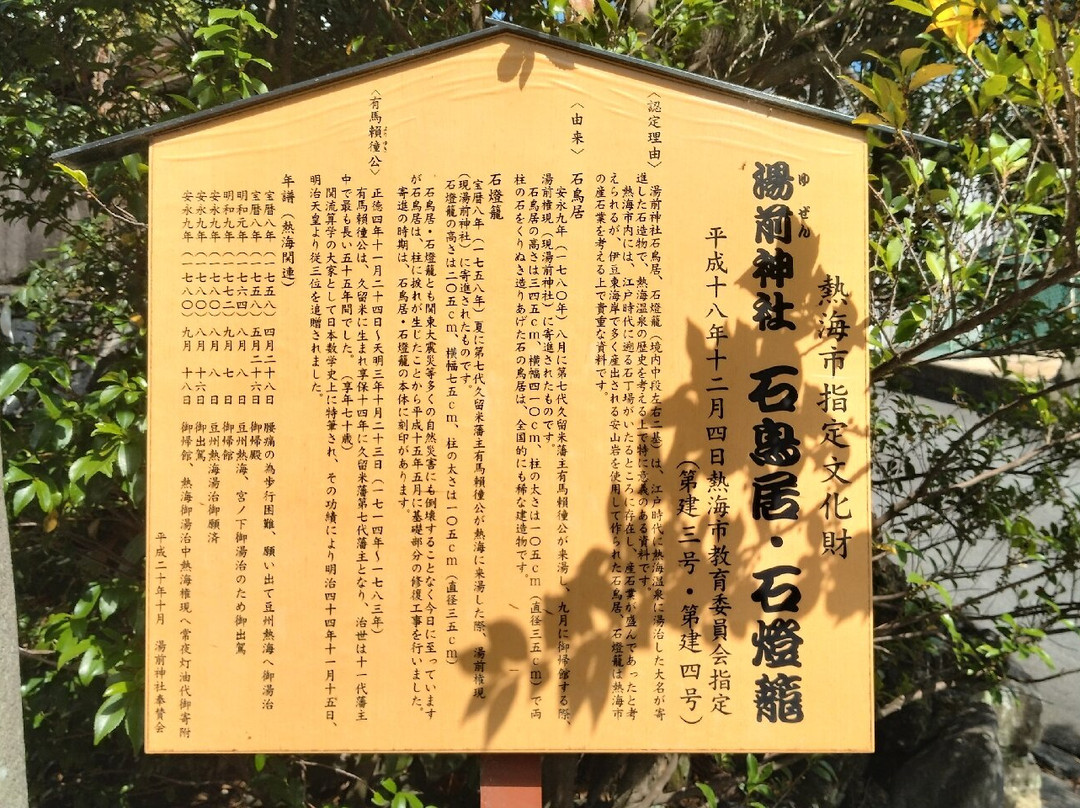 熱海市指定文化財
湯前神社 石鳥居・石燈籠
ゆぜん
平成十八年十二月四日熱海市教育委員会指定
（第建三号・第建四号）
〈認定理由〉
湯前神社石鳥居、石燈籠（境内中段左右二基）は、江戸時代に熱海温泉に湯治した大名が寄
進した石造物で、熱海温泉の歴史を考える上で特に意義のある資料です。
熱海市内には、江戸時代に遡る石丁場がいたるところに存在し、産石業が盛んであったと考
えられるが、伊豆東海岸で多く産出される安山岩を使用して作られた石鳥居、石燈籠は熱海市
の産石業を考える上で貴重な資料です。
〈由来〉
石鳥居
安永九年（一七八〇年）八月に第七代久留米藩主有馬頼徸公が来湯し、九月に御帰館する際、
湯前権現（現湯前神社）に寄進されたものです。
石鳥居の高さは三四五cm、横幅四一〇cm、柱の太さは一〇五cm（直径三五cm）で両
柱の石をくりぬき造りあげた石の鳥居は、全国的にも稀な建造物です。
石燈籠
宝暦八年（一七五八年）夏に第七代久留米藩主有馬頼徸公が熱海に来湯した際、湯前権現
（現湯前神社）に寄進されたものです。
石燈籠の高さは二〇五cm、横幅七五cm、柱の太さは一〇五cm（直径三五cm）
石鳥居・石燈籠とも関東大震災等多くの自然災害にも倒壊することなく今日に至っています
が石鳥居は、柱に捩れが生じたことから平成十五年五月に基礎部分の修復工事を行いました。
寄進の時期は、石鳥居・石燈籠の本体に刻印があります。
〈有馬頼徸公〉
よりゆき
正徳四年十一月二十四日～天明三年十月二十三日（一七一四年～一七八三年）
有馬頼徸公は、久留米に生まれ享保十四年に久留米藩第七代藩主となり、治世は十一代藩主
中で最も長い五十五年間でした。（享年七十歳）
関流算学の大家として日本数学史上に特筆され、その功績により明治四十四年十一月十五日、
明治天皇より従三位を追贈されました。
年譜（熱海関連）
宝暦八年（一七五八）四月二十八日 腰痛の為歩行困難、願い出て豆州熱海へ御湯治
宝暦八年（一七五八）五月二十六日 御帰殿
明和元年（一七六四）八月 八日 豆州熱海、宮ノ下御湯治のため御出駕
明和九年（一七七二）九月 七日 御帰館
安永九年（一七八〇）八月 八日 豆州熱海湯治御願済
安永九年（一七八〇）八月 十六日 御出駕
安永九年（一七八〇）九月 十八日 御帰館、熱海御湯治中熱海権現へ常夜灯油代御寄附
平成二十年十月 湯前神社奉賛会